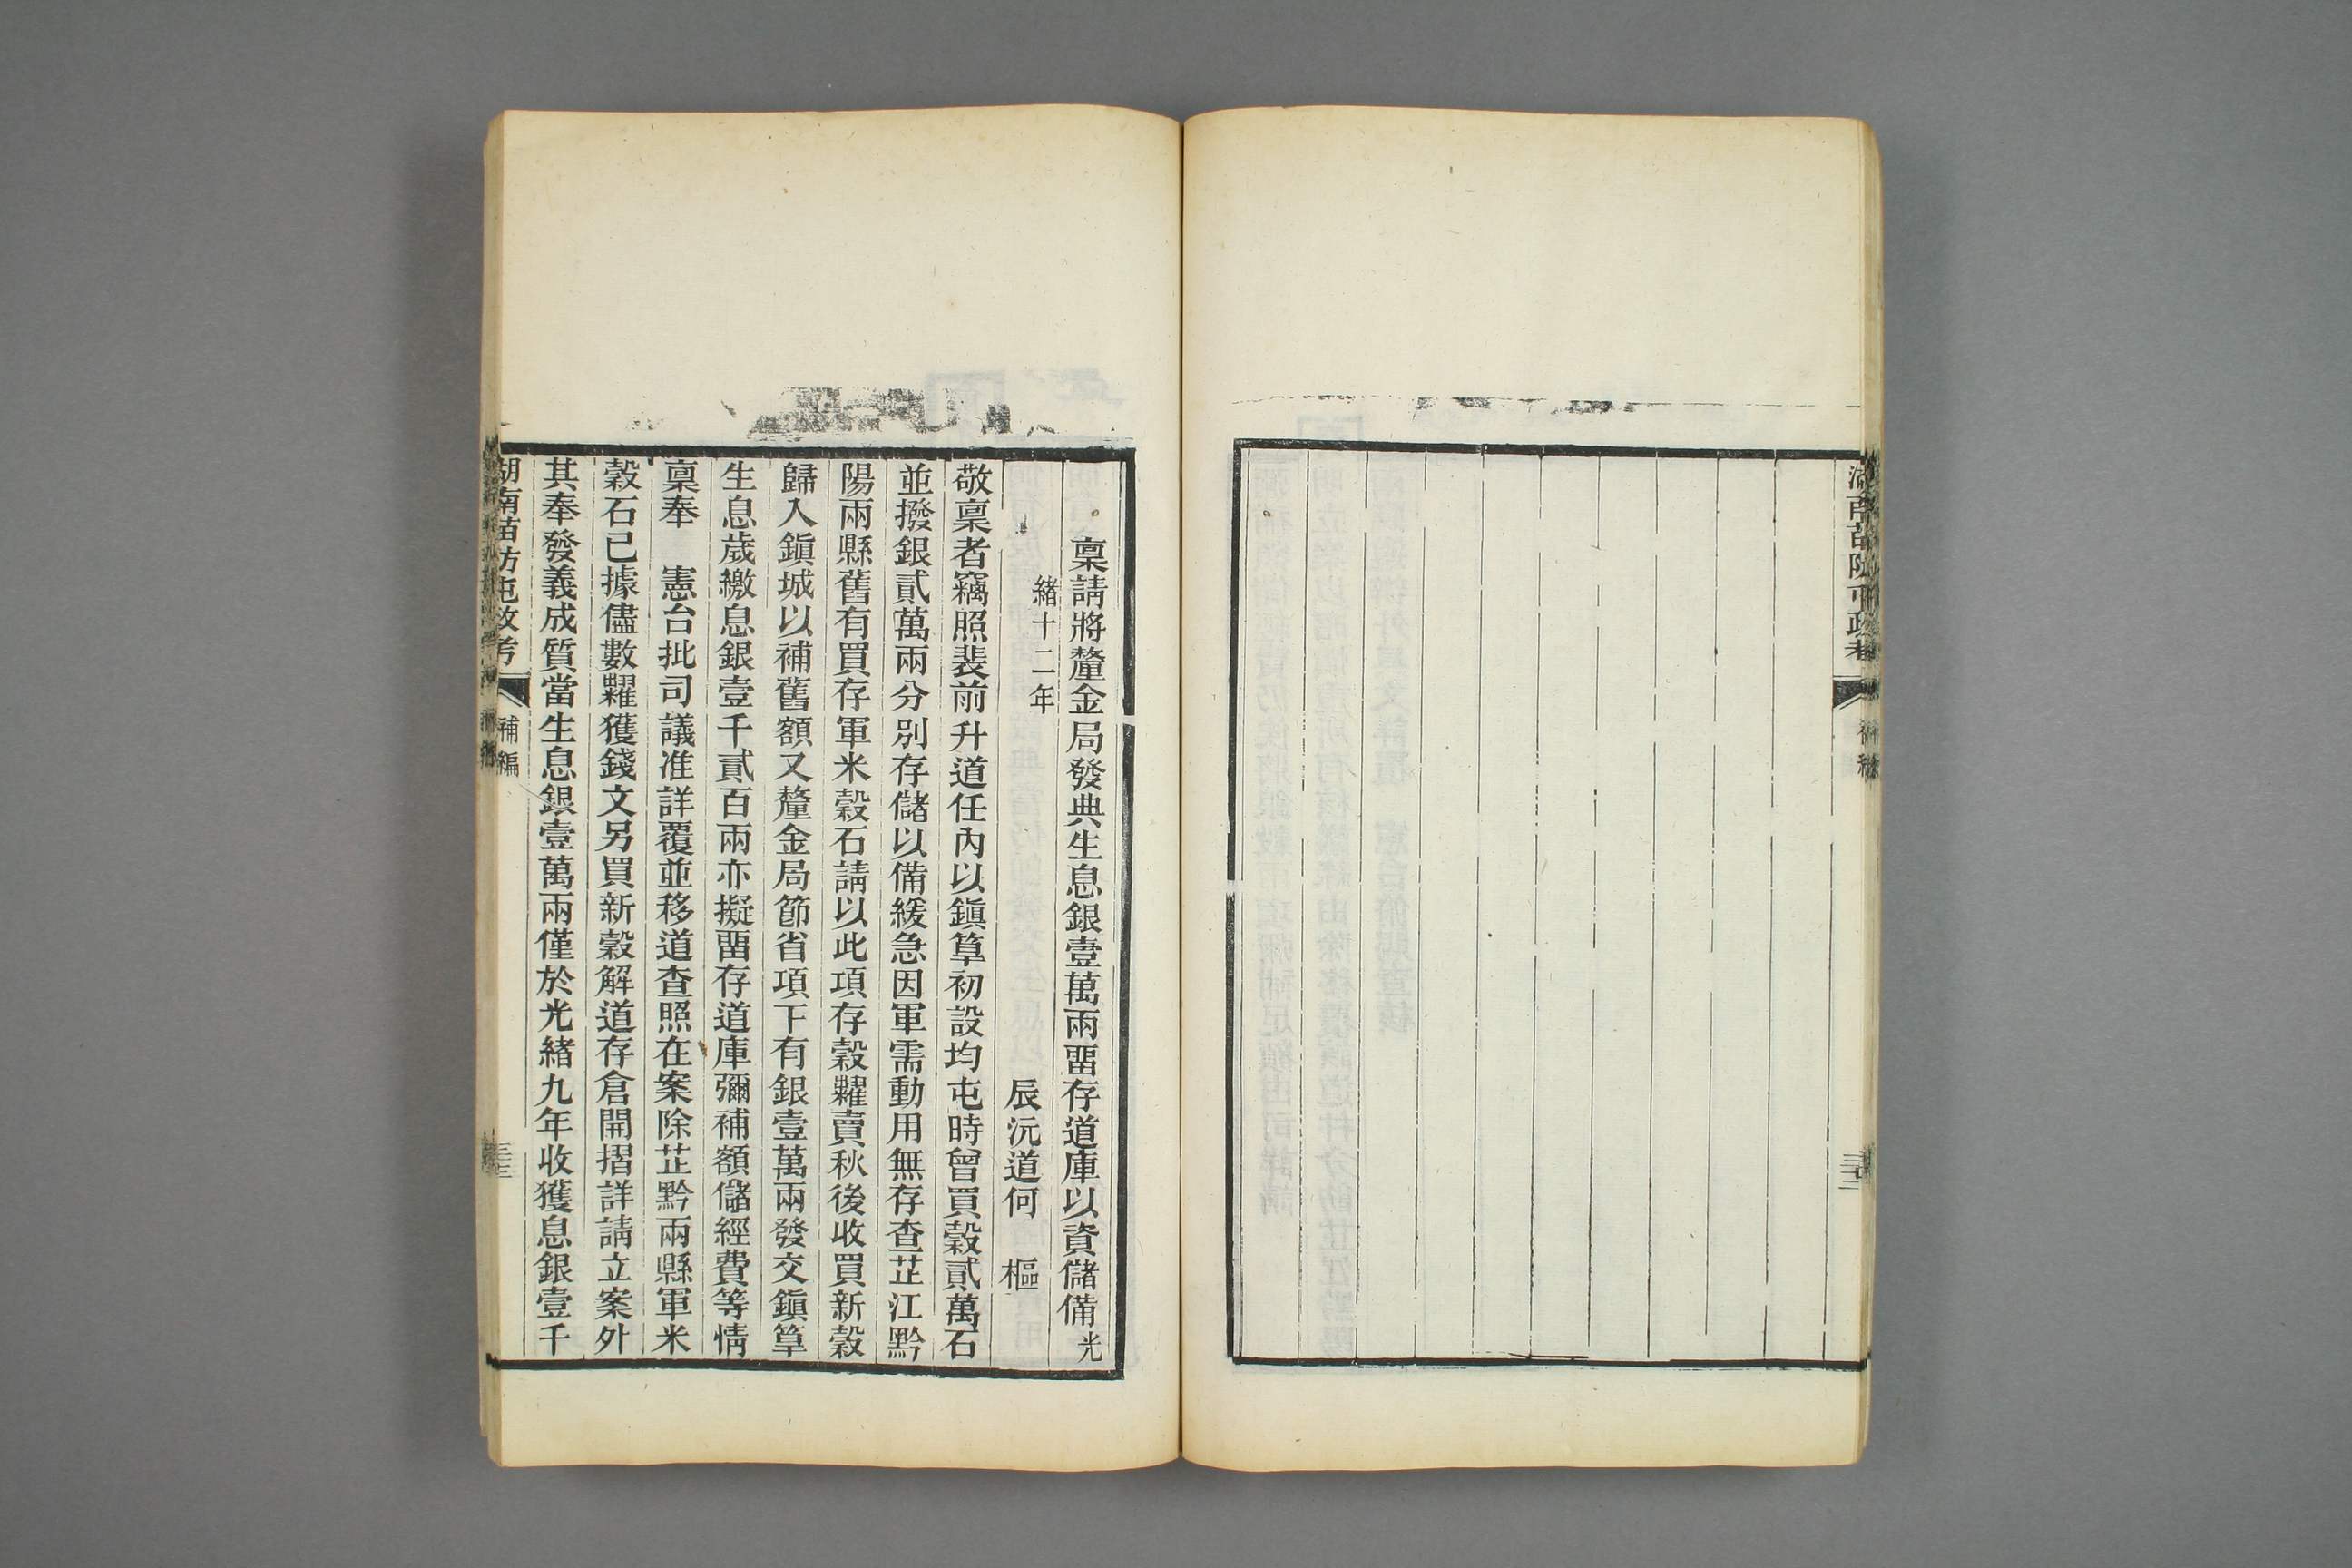 湖南苗防屯政考
補編
稟請將釐金局發典生息銀壹萬兩畱存道庫以資儲備光
緒十二年
辰沅道何 樞
敬稟者竊照裴前升道任內以鎭筸初設均屯時曾買穀貳萬石
並撥銀貳萬兩分別存儲以備緩急因軍需動用無存查芷江黔
陽兩縣舊有買存軍米穀石請以此項存穀糶賣秋後收買新穀
歸入鎭城以補舊額又釐金局節省項下有銀壹萬兩發交鎭筸
生息歲繳息銀壹千貳百兩亦擬畱存道庫彌補額儲經費等情
稟奉 憲台批司議准詳覆並移道查照在案除芷黔兩縣軍米
穀石已據儘數糶獲錢文另買新穀解道存倉開摺詳請立案外
其奉發義成質當生息銀壹萬兩僅於光緒九年收獲息銀壹千
湖南苗防屯政考
補編
三三